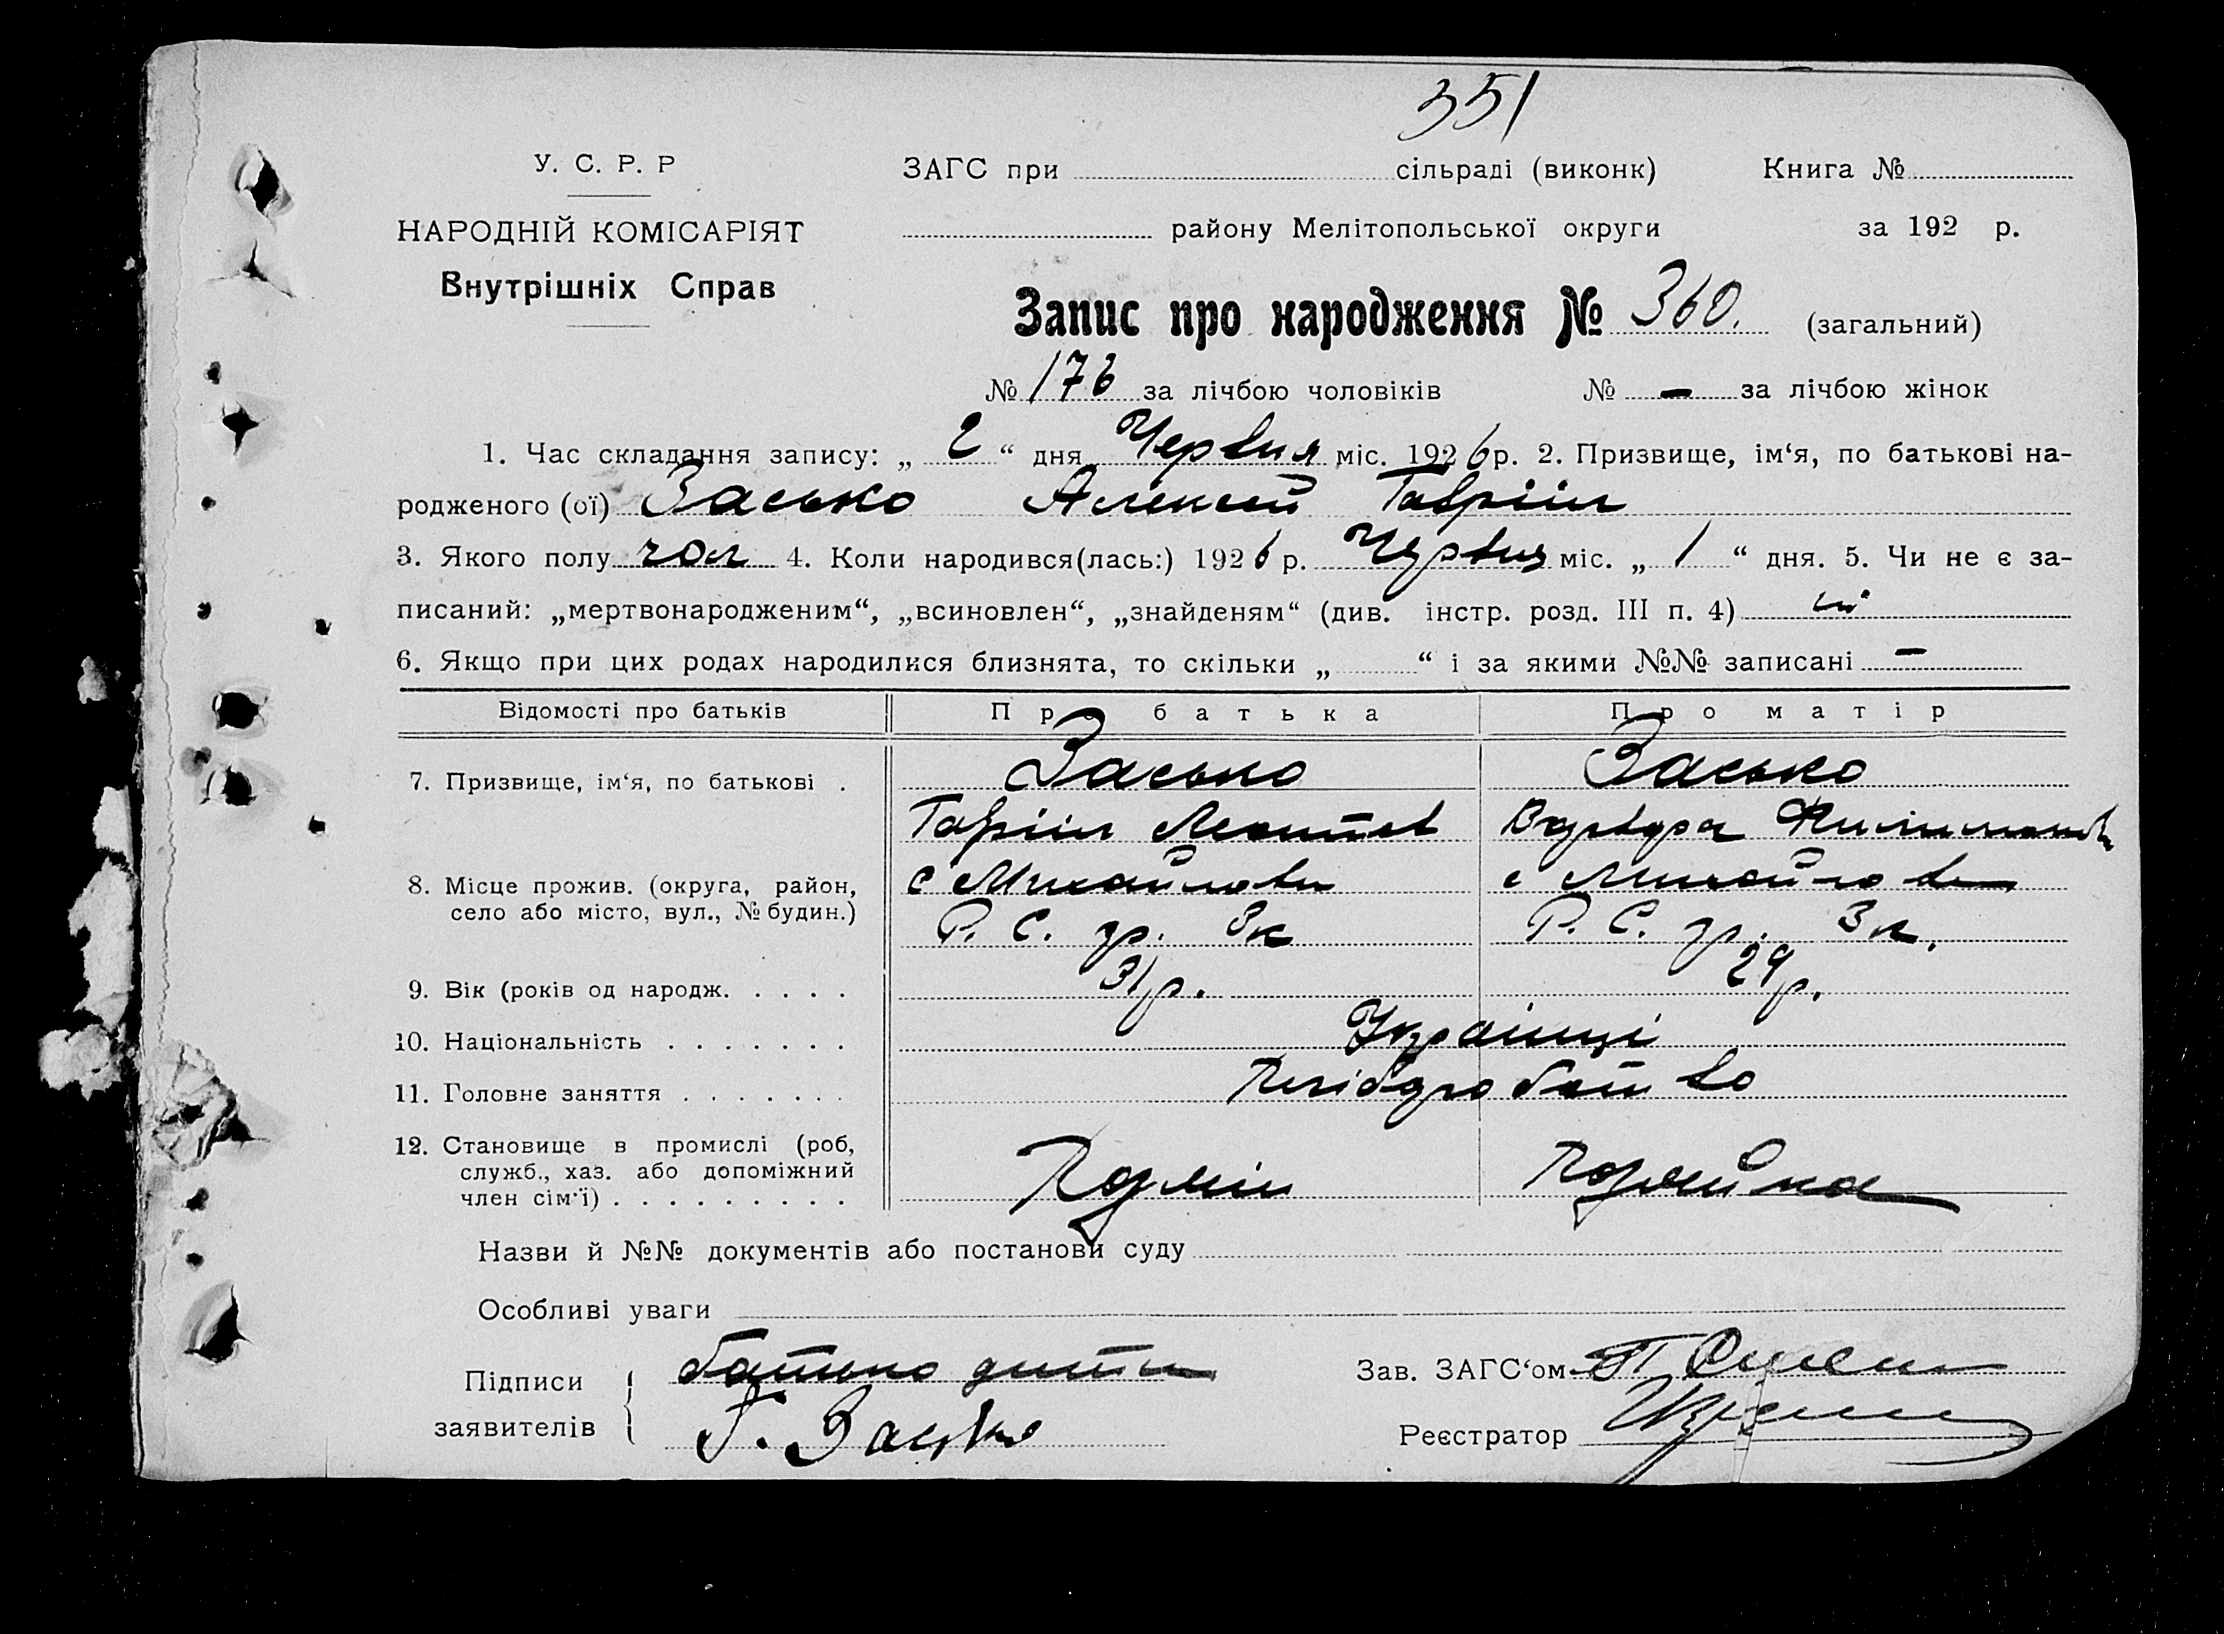 351
У. С. Р. Р
ЗАГС при сільраді (виконк) Книга №
НАРОДНІЙ КОМІСАРІЯТ
району Мелітопольської округи за 192 р.
Внутрішніх Справ
Запис про народження № 360. (загальний)
№ 176 за лічбою чоловіків № — за лічбою жінок
1. Час складання запису: „ 2 “ дня Червня міс. 1926 р. 2. Призвище, ім‘я, по батькові на-
родженого (ої) Засько Алексей Гавріил
3. Якого полу чол 4. Коли народився(лась:) 1926 р. Червня міс. „ 1 “ дня. 5. Чи не є за-
писаний: „мертвонародженим“, „всиновлен“, „знайденям“ (див. інстр. розд. III п. 4) ні
6. Якщо при цих родах народилися близнята, то скільки „ “ і за якими №№ записані —
Відомості про батьків Про батька Про матір
7. Призвище, ім‘я, по батькові . Засько Засько
Гавріил Варвара
8. Місце прожив. (округа, район, с Михайловка с Михайловка
село або місто, вул., № будин.) Р. С. гр. 3к Р. С. гр. 3к.
9. Вік (років од народж. . . . . 31 р. 29 р.
10. Національність . . . . . . . Українці
11. Головне заняття . . . . . . . Хліборобство
12. Становище в промислі (роб,
служб., хаз. або допоміжний
член сім‘ї) . . . . . . . . . .
Назви й №№ документів або постанови суду
Особливі уваги
Підписи батько дити
Зав. ЗАГС‘ом
заявителів Г. Засько
Реєстратор